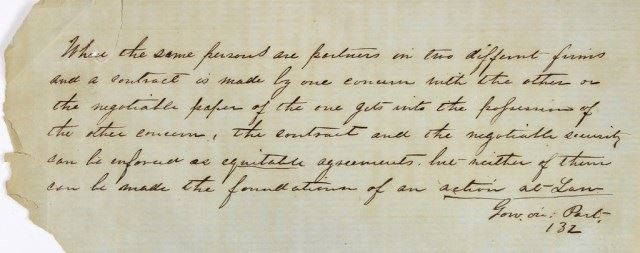 When the same persons are partners in two different firms
and a contract is made by one concern with the other or
the negotiable paper of the one gets into the possession of
the other concern, the contract and the negotiable security
can be enforced as equitable agreements. but neither of them
can be made the foundation of an action at Law
Gow. on: Part.
132